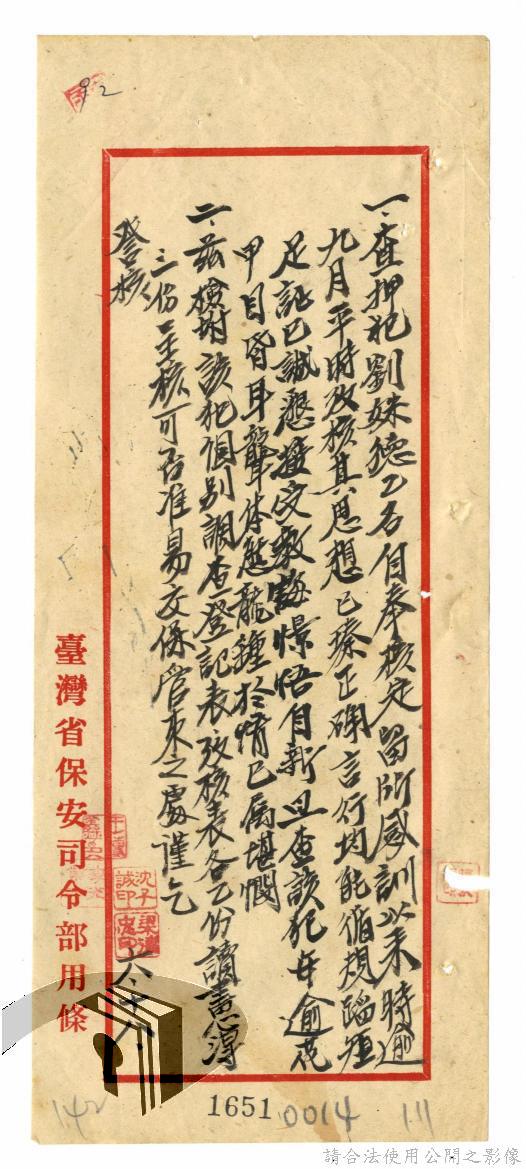 92
一、查押犯劉妹德乙名自奉核定留所感訓以來時逾
九月平時考核其思想已臻正確言行均能循規蹈矩
足証已誠懇接受教誨憬悟自新且查該犯年逾花
甲目昏耳聾体態龍鍾於情已屬堪憫
二、茲檢附該犯個別調查登記表考核表各乙份讀書心得
三份呈核可否准易交保管束之處謹乞
發核
六、十八
臺灣省保安司令部用條
沈子誠印
1651
0014
142
111
請合法使用公開之影像